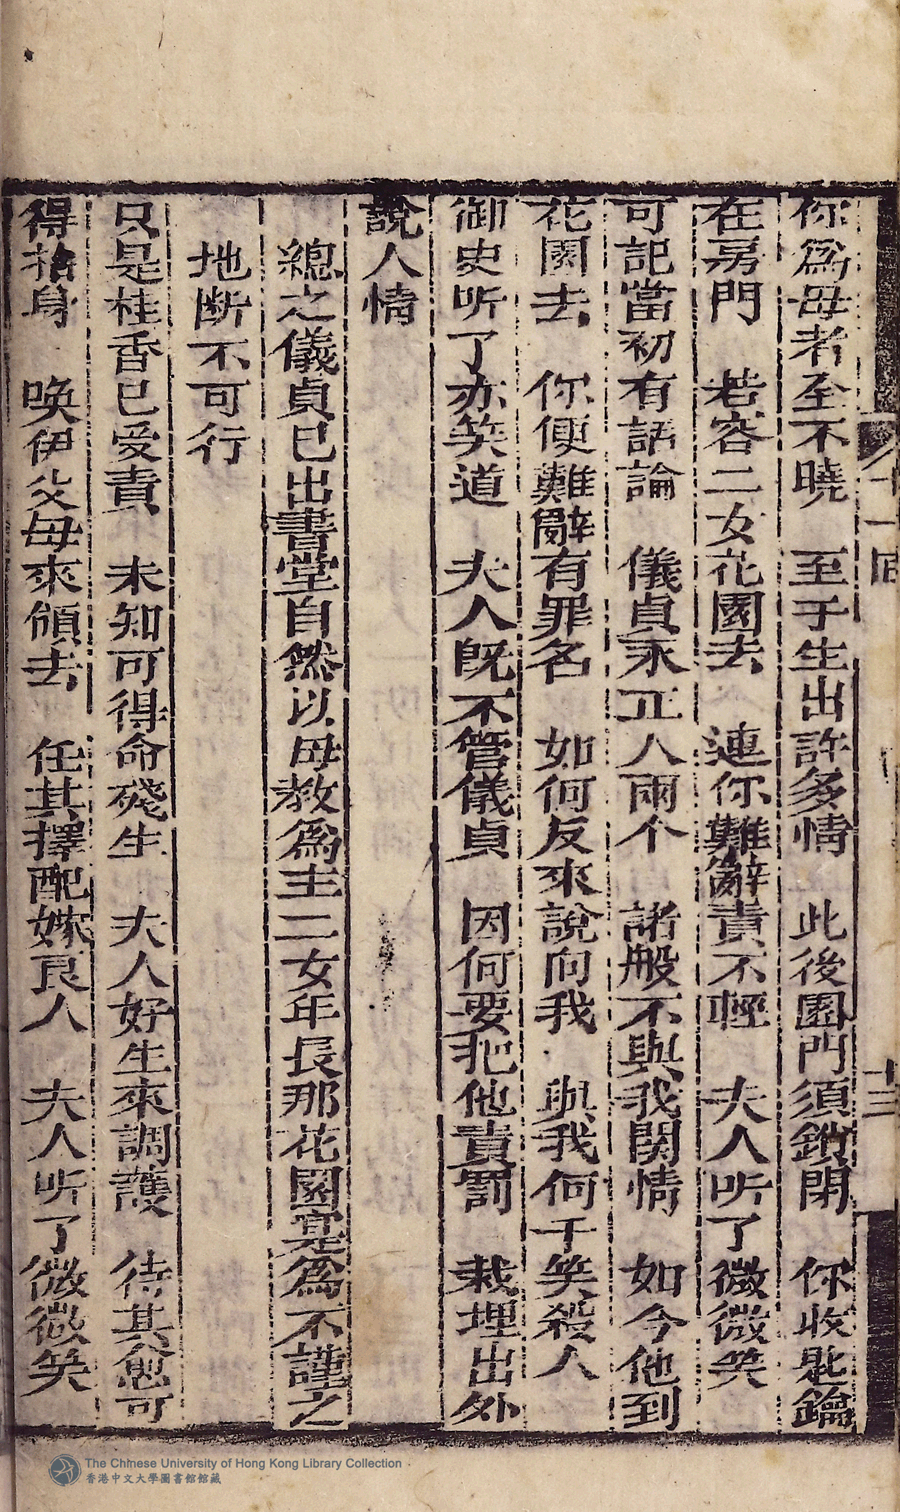 你為毋者至不曉　至于生出許多情　此後園門須鎖閉　你收匙鑰
在房門　若容二女花園去　連你難辭責不輕　夫人听了微微笑
可記當初有話論　儀貞永正人兩个　諸般不與我関情　如今他到
花園去　你便難辭有罪名　如何反來說向我　與我何干笑殺人
御史听了亦笑道　夫人既不管儀貞　因何要把他責罰　栽埋出外
說人情
總之儀貞已出書堂自然以毋教為主二女年長那花園寔為不謹之
地断不可行
只是桂香已受責　未知可得命殘生　夫人好生來調護　待其愈可
得抬身　喚伊父毋來領去　任其擇配嫁良人　夫人听了微微笑
十一回
十三
The Chinese University of Hong Kong Library Collection
香港中文大學圖書館館藏